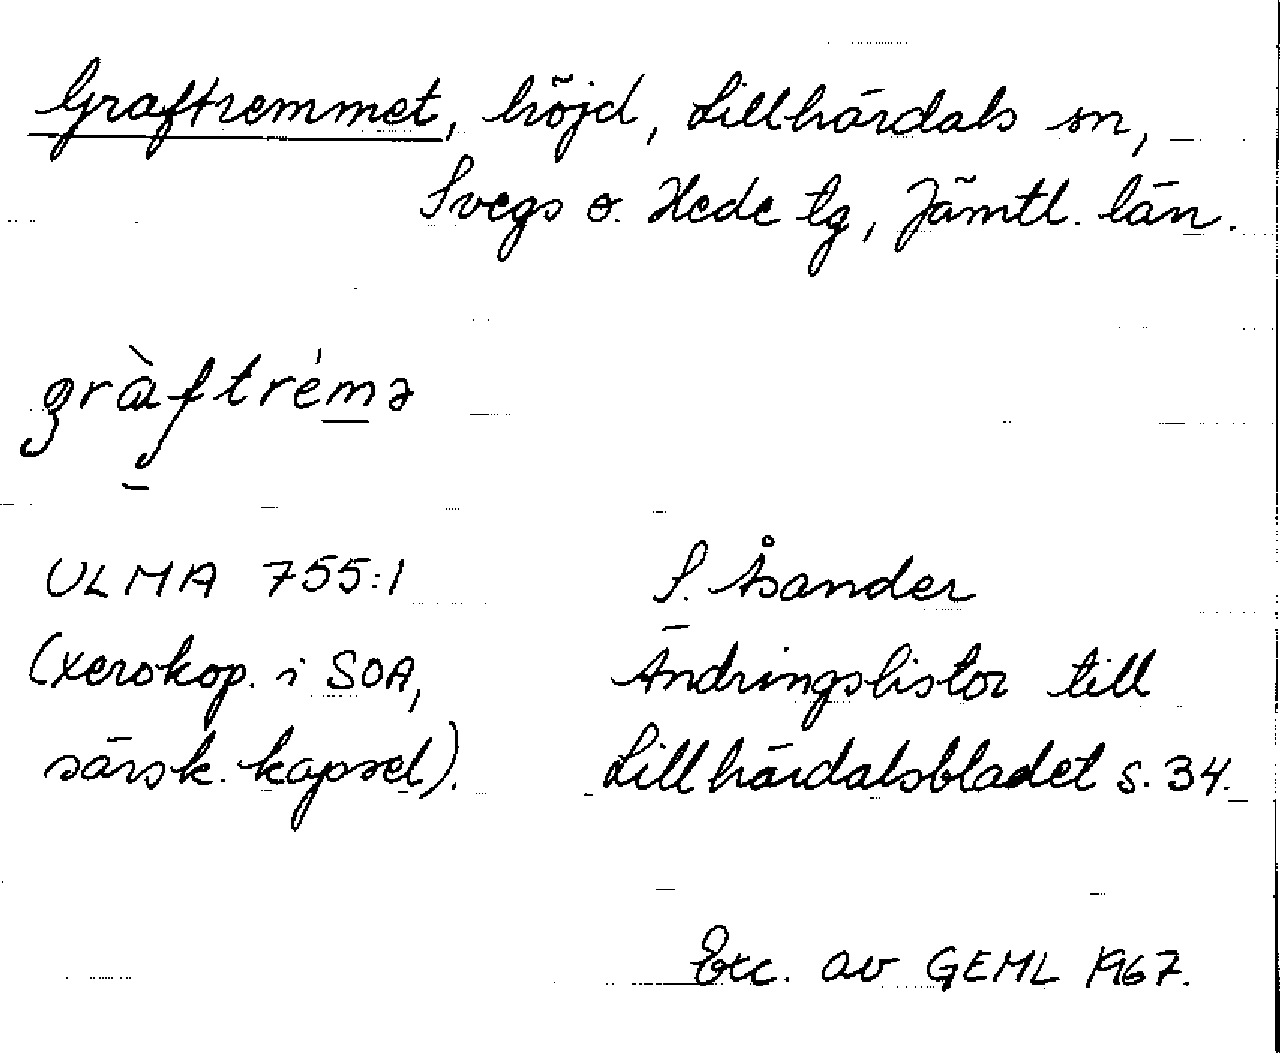 Graftremmet, höjd, Lillhärdals sn,
Svegs o. Hede tg, Jämtl. län.
gràftrémə
ULMA 755:1
S. Åsander
(xerokop. i SOA,
Ändringslistor till
särsk. kapsel).
Lillhärdalsbladet s. 34.
Exc. av GEML 1967.